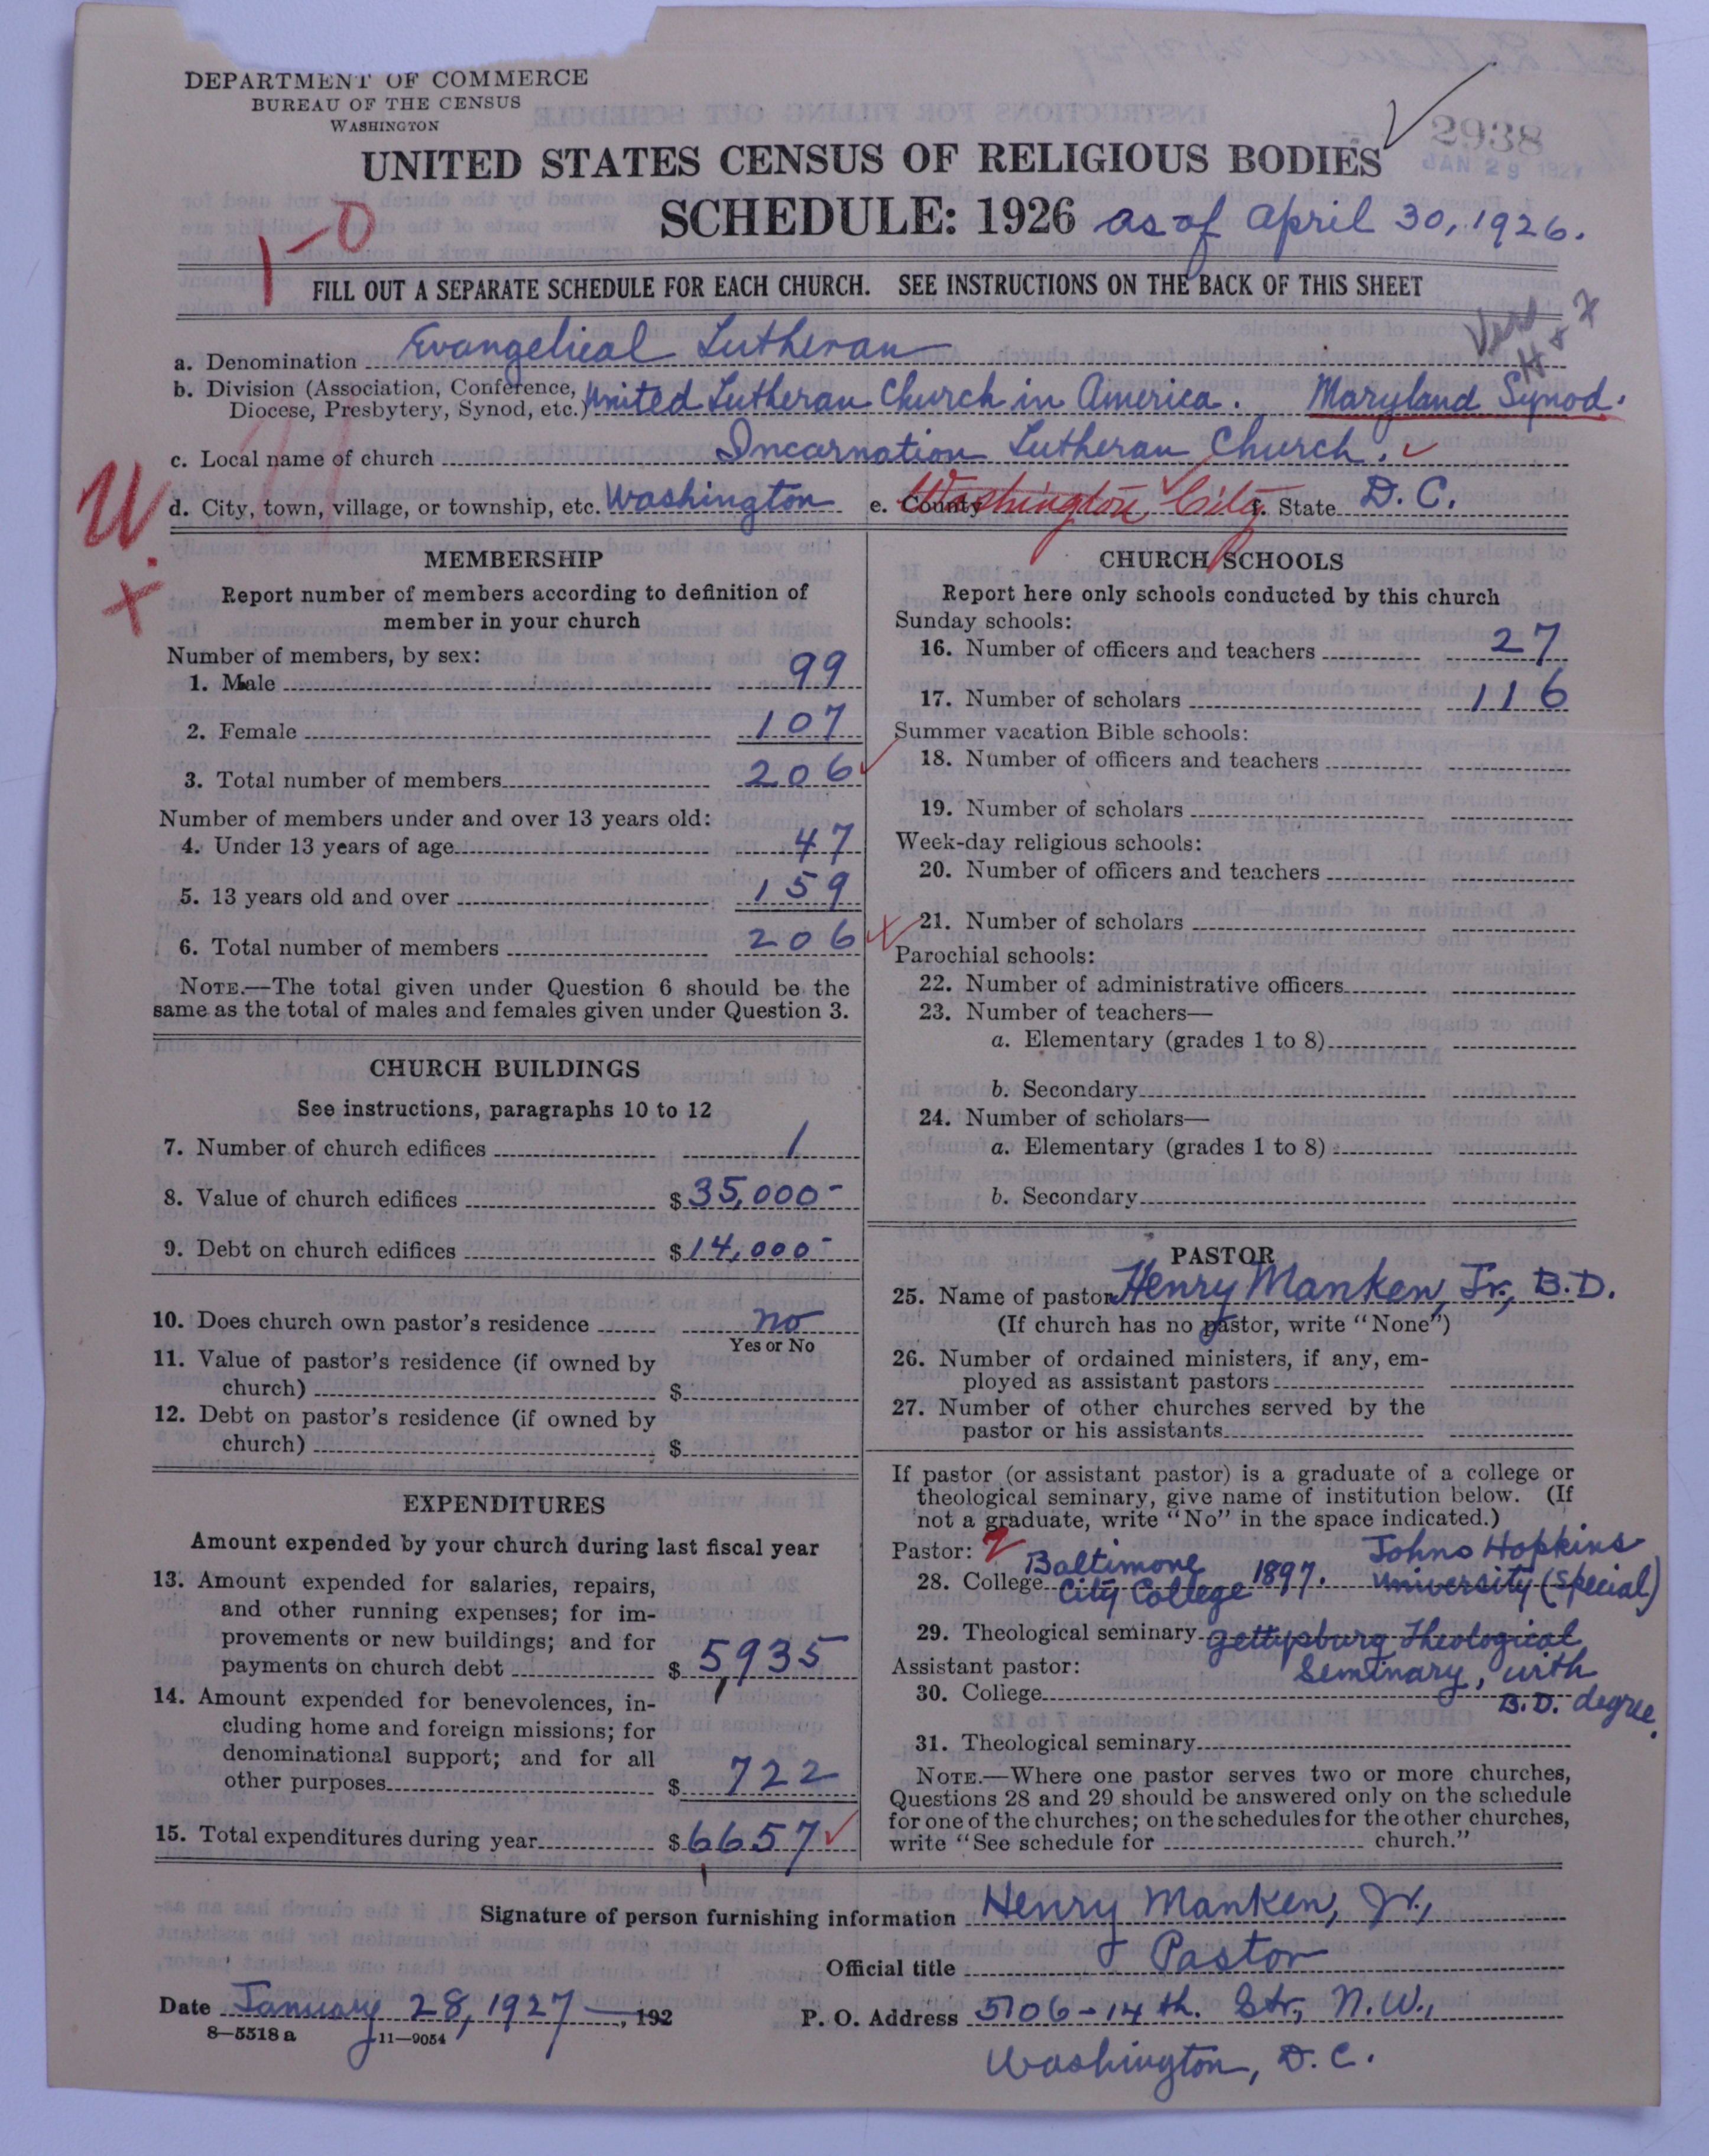 DEPARTMENT OF COMMERCE
BUREAU OF THE CENSUS
WASHINGTON
2938
JAN 29 1927
UNITED STATES CENSUS OF RELIGIOUS BODIES
SCHEDULE: 1926 as of April 30, 1926.
1-0
FILL OUT A SEPARATE SCHEDULE FOR EACH CHURCH. SEE INSTRUCTIONS ON THE BACK OF THIS SHEET
a. Denomination Evangelical Lutheran
b. Division (Association, Conference, Diocese, Presbytery, Synod, etc.) United Lutheran Church in America. Maryland Synod.
c. Local name of church Incarnation Lutheran Church.
d. City, town, village, or township, etc. Washington e. County Washington City f. State D. C.
MEMBERSHIP
Report number of members according to definition of
member in your church
Number of members, by sex:
1. Male 99
2. Female 107
3. Total number of members 206
Number of members under and over 13 years old:
4. Under 13 years of age 47
5. 13 years old and over 159
6. Total number of members 206
NOTE.—The total given under Question 6 should be the
same as the total of males and females given under Question 3.
CHURCH BUILDINGS
See instructions, paragraphs 10 to 12
7. Number of church edifices 1
8. Value of church edifices $35,000-
9. Debt on church edifices $14,000-
10. Does church own pastor's residence no
Yes or No
11. Value of pastor's residence (if owned by
church) $
12. Debt on pastor's residence (if owned by
church) $
EXPENDITURES
Amount expended by your church during last fiscal year
13. Amount expended for salaries, repairs,
and other running expenses; for im-
provements or new buildings; and for
payments on church debt $5,935
14. Amount expended for benevolences, in-
cluding home and foreign missions; for
denominational support; and for all
other purposes $722
15. Total expenditures during year $6657
CHURCH SCHOOLS
Report here only schools conducted by this church
Sunday schools:
16. Number of officers and teachers 27
17. Number of scholars 116
Summer vacation Bible schools:
18. Number of officers and teachers
19. Number of scholars
Week-day religious schools:
20. Number of officers and teachers
21. Number of scholars
Parochial schools:
22. Number of administrative officers
23. Number of teachers—
a. Elementary (grades 1 to 8)
b. Secondary
24. Number of scholars—
a. Elementary (grades 1 to 8)
b. Secondary
PASTOR
25. Name of pastor Henry Manken, Jr., B.D.
(If church has no pastor, write "None")
26. Number of ordained ministers, if any, em-
ployed as assistant pastors
27. Number of other churches served by the
pastor or his assistants
If pastor (or assistant pastor) is a graduate of a college or
theological seminary, give name of institution below. (If
not a graduate, write "No" in the space indicated.)
Pastor: 2
28. College Baltimore City College 1897. Johns Hopkins University (special)
29. Theological seminary Gettysburg Theological
Seminary, with
B.D. degree.
Assistant pastor:
30. College
31. Theological seminary
NOTE.—Where one pastor serves two or more churches,
Questions 28 and 29 should be answered only on the schedule
for one of the churches; on the schedules for the other churches,
write "See schedule for church."
Signature of person furnishing information Henry Manken, Jr.,
Official title Pastor
Date January 28, 1927 —, 192
P. O. Address 5106-14th. Str., N.W.,
Washington, D.C.
8—5518 a 11—9054